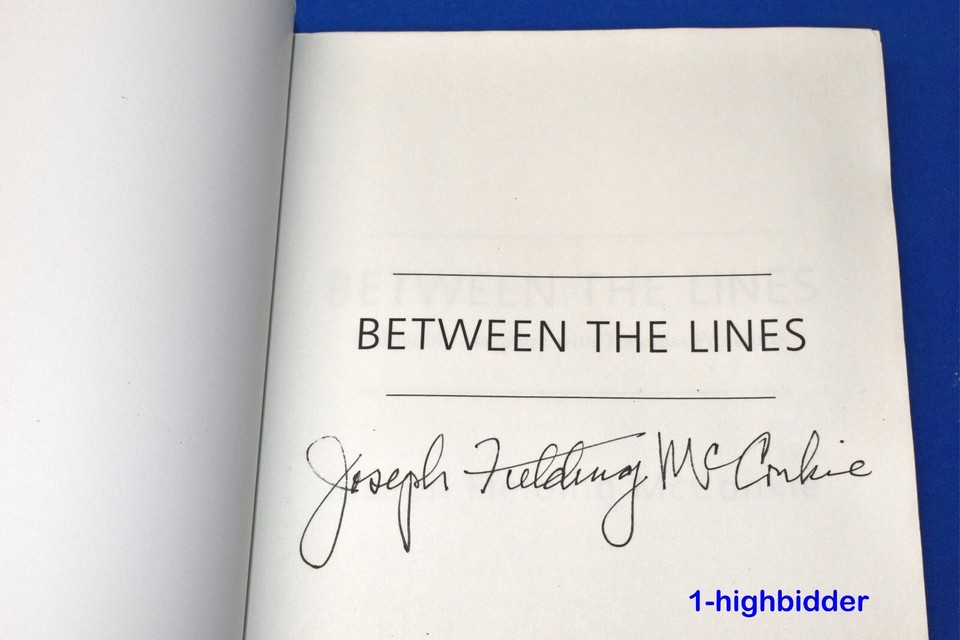 BETWEEN THE LINES
Joseph Fielding McConkie
1-highbidder